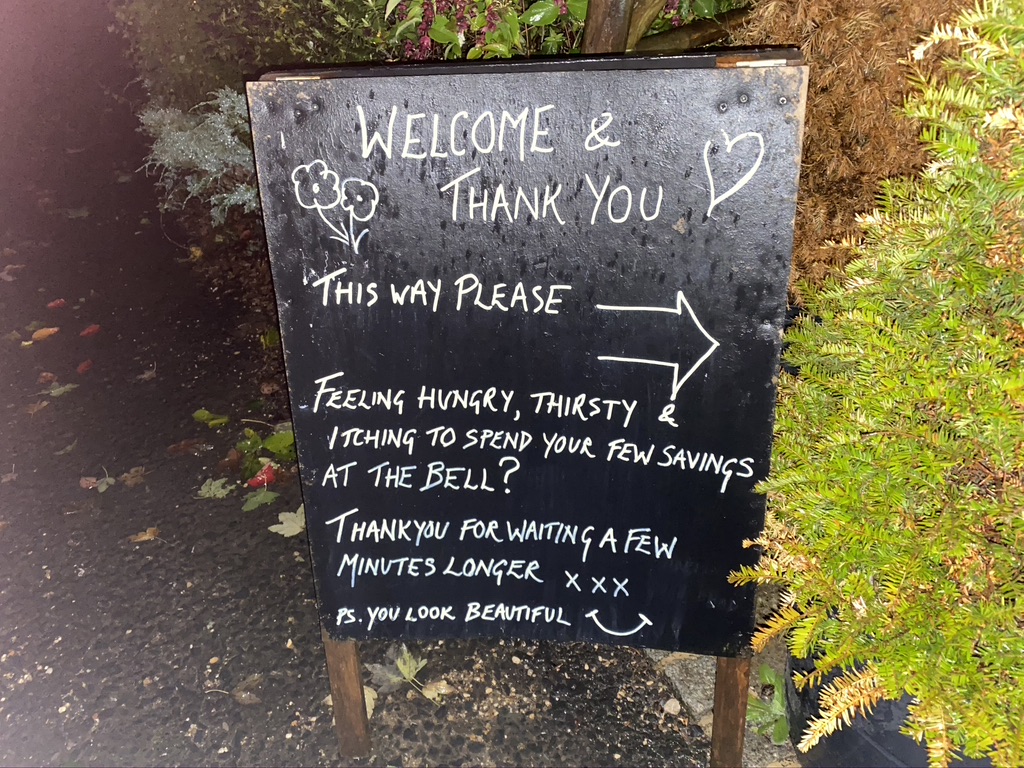 WELCOME &
THANK YOU
THIS WAY PLEASE
FEELING HUNGRY, THIRSTY &
ITCHING TO SPEND YOUR FEW SAVINGS
AT THE BELL?
THANKYOU FOR WAITING A FEW
MINUTES LONGER XXX
PS. YOU LOOK BEAUTIFUL